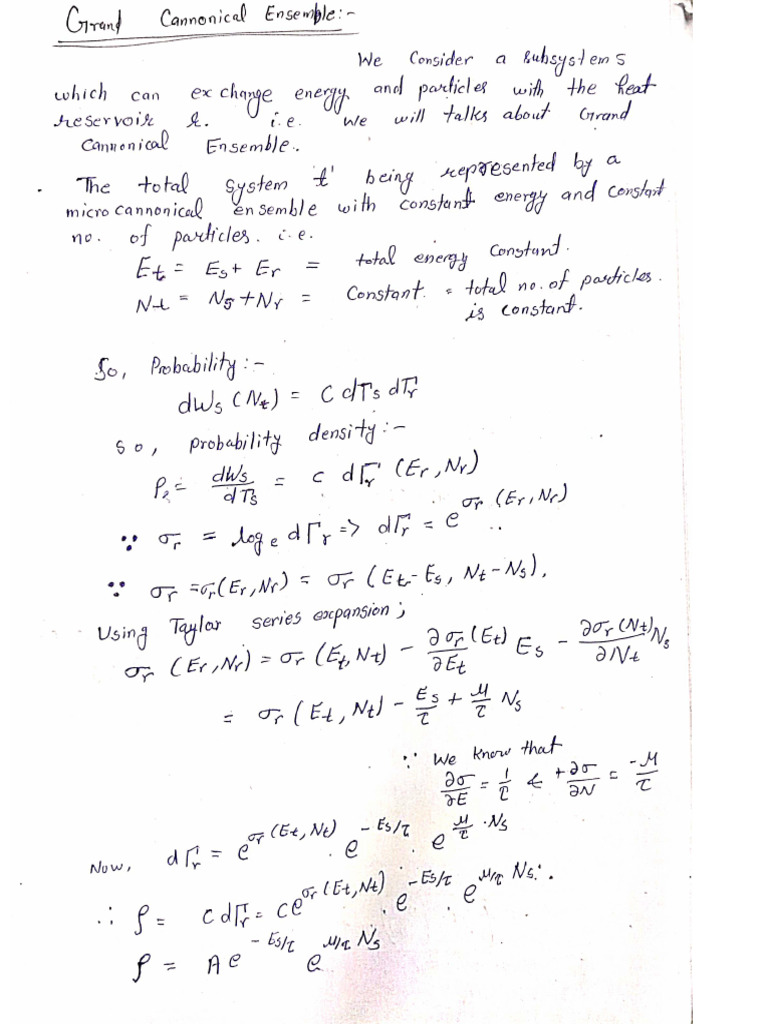 Grand Cannonical Ensemble:-
We Consider a subsystem s
which can exchange energy and particles with the heat
reservoir r. i.e. We will talks about Grand
Cannonical Ensemble.
. The total system 't' being represented by a
micro cannonical ensemble with constant energy and constant
no. of particles. i.e.
Et = Es + Er = total energy constant.
Nt = Ns + Nr = Constant = total no. of particles.
is constant.
So, Probability:-
dWs (Nt) = C dΓs dΓr
So, probability density:-
ρ = dWs/dΓs = C dΓr (Er, Nr)
∵ σr = loge dΓr => dΓr = e^σr (Er, Nr)
∵ σr = σr(Er, Nr) = σr (Et - Es, Nt - Ns).
Using Taylor series expansion;
σr (Er, Nr) = σr (Et, Nt) - ∂σr(Et)/∂Et Es - ∂σr(Nt)/∂Nt Ns
= σr (Et, Nt) - Es/τ + μ/τ Ns
∵ We know that
∂σ/∂E = 1/τ & +∂σ/∂N = -μ/τ
Now, dΓr = e^σr(Et, Nt) . e^-Es/τ . e^μ/τ . Ns
∴ ρ = C dΓr = C e^σr(Et, Nt) . e^-Es/τ . e^μ/τ Ns .
ρ = A e^-Es/τ e^μ/τ Ns